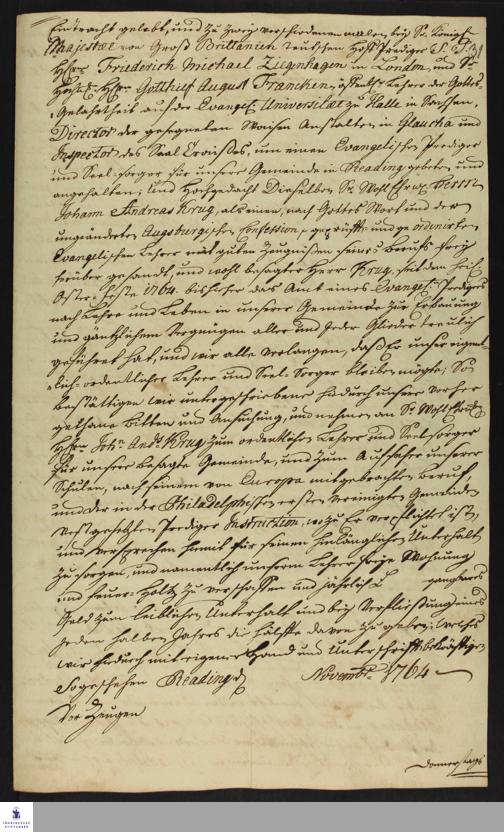 Eintracht gelebt, und zu zwey verschiedenen malen, bey Sr. Königl.
Majestæt von Groß Brittanien teutschen Hoff Prediger S. T.
Herrn Friederich Michael Ziegenhagen in London, und Sr.
Herrn Gotthilf August Francken, öffentl. Lehrer der Gottes
Gelahrtheit auf der Evangel. Universitæt zu Halle in Sachsen,
Director der gesegneten Waisen Anstalten in Glaucha und
Inspector des Saal Creises, um einen Evangelischen Prediger
und Seel-sorger für unsere Gemeinde in Reading gebeten und
angehalten; und Hochgedacht Dieselben Sr. Wohl Ehrw. Herrn
Johann Andreas Krug, als einen, nach Gottes Wort und der
ungeänderten Augsburgischen Confession, geprüfften und ordinirten
Evangelischen Lehrer mit guten Zeugnißen seines Berufs
herüber gesandt, und wohl besagter Herr Krug, seit dem heil.
Oster-Feste 1764. bishieher das Amt eines Evangel. Predigers
nach Lehre und Leben in unserer Gemeinde zur Erbauung
und gäntzlichem Vergnügen aller und jeder Glieder treulich
geführet hat, und wir alle verlangen, daß Er unser eigent-
lich-ordentlicher Lehrer und Seel-Sorger bleiben mögte; So
bestättigen wir unterschriebene hiedurch unsere vorher
gethane Bitten und Ansuchung, und nehmen an Sr. Wohl Ehrw.
Herrn Joh. Andr. Krug zum ordentlichen Lehrer und Seelsorger
für unsere besagte Gemeinde, und zum Aufseher unserer
Schulen, nach seinem von Europa mitgebrachten Beruf,
und der in der Philadelphischen ersten Vereinigten Gemeinden
vestgesetzten Prediger Instruction, wozu Er verpflichtet ist,
und versprechen hiemit für seinen hinlänglichen Unterhalt
zu sorgen, und namentlich unserm Lehrer freye Wohnung
und feuer-Holtz zu verschaffen und jährlich £ gangbares
Geld zum leiblichen Unterhalt und bey Verfliessung eines
jeden halben Jahres die hälfte davon zu geben; welches
wir hiedurch mit eigener Hand und Unterschrifft bekräftigen.
So geschehen Reading Novembr. 1764
Vor Zeugen
Donnerstags
FRANCKESCHE
STIFTUNGEN